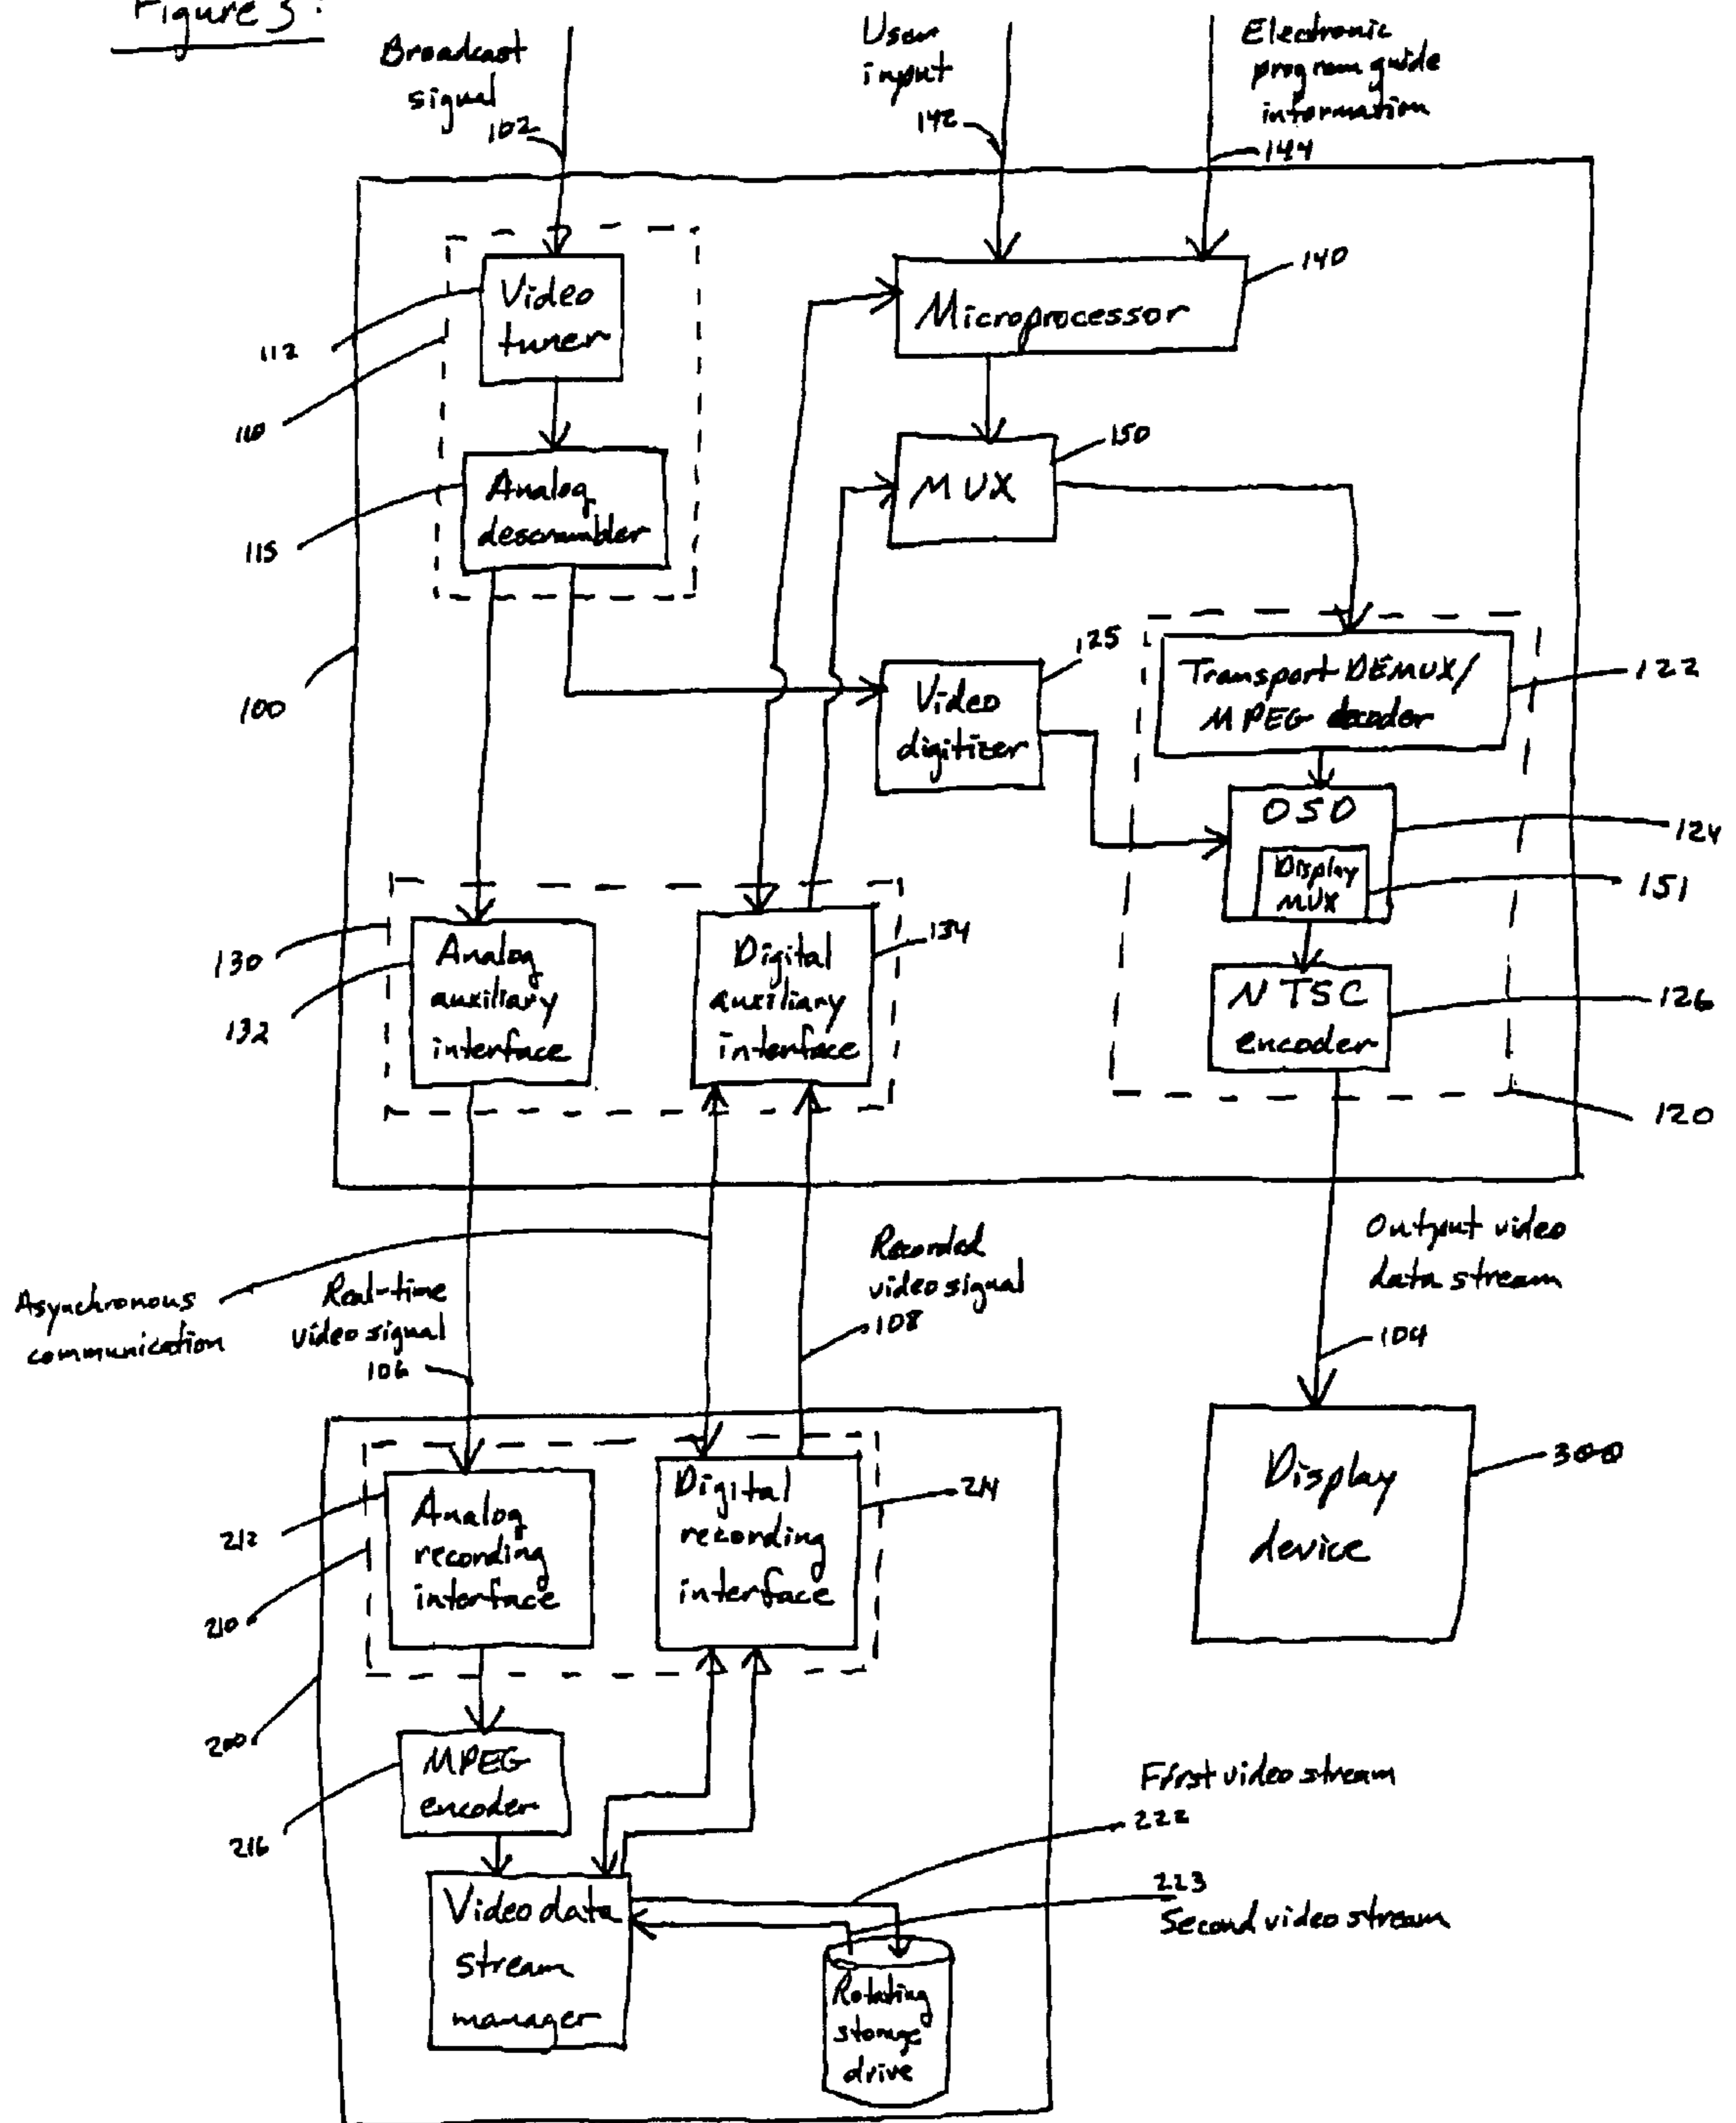 Figure 3:
Broadcast
signal
102
User
input
142
Electronic
program guide
information
144
Video
tuner
112
110
Microprocessor
140
Analog
descrambler
115
MUX
150
100
Video
digitizer
125
Transport DEMUX/
MPEG decoder
122
OSD
124
Display
MUX
151
NTSC
encoder
126
120
130
132
Analog
auxiliary
interface
Digital
auxiliary
interface
134
Asynchronous
communication
Real-time
video signal
106
Recorded
video signal
108
Output video
data stream
104
Display
device
300
212
210
Analog
recording
interface
Digital
recording
interface
214
200
MPEG
encoder
216
First video stream
222
223
Second video stream
Video data
stream
manager
Rotating
storage
drive